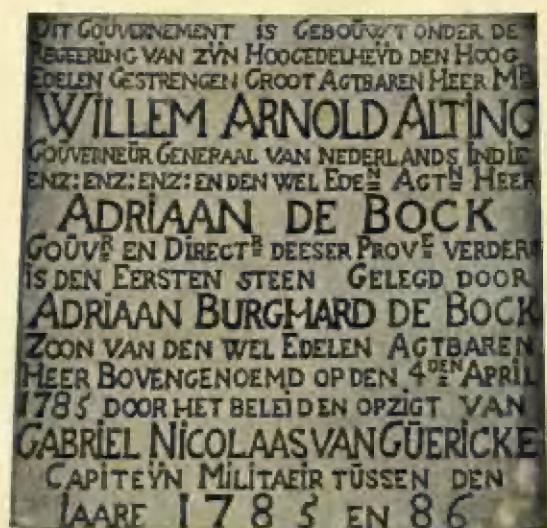 DIT GOUVERNEMENT IS GEBOŪWT ONDER DE
REGEERING VAN ZŸN HOOGEDELHEŸD DEN HOOG
EDELEN GESTRENGEN GROOT AGTBAREN HEER MR
WILLEM ARNOLD ALTING
GOŪVERNEŪR GENERAAL VAN NEDERLANDS INDIE
ENZ:ENZ:ENZ: EN DEN WEL EDEN AGTN HEER
ADRIAAN DE BOCK
GOŪVR EN DIRECTR DEESER PROVE VERDERS
IS DEN EERSTEN STEEN GELEGD DOOR
ADRIAAN BURGHARD DE BOCK
ZOON VAN DEN WEL EDELEN AGTBAREN
HEER BOVENGENOEMD OP DEN 4DEN APRIL
1785 DOOR HET BELEID EN OPZIGT VAN
GABRIEL NICOLAAS VAN GŪERICKE
CAPITEŸN MILITAEIR TŪSSEN DEN
JAARE 1785 EN 86